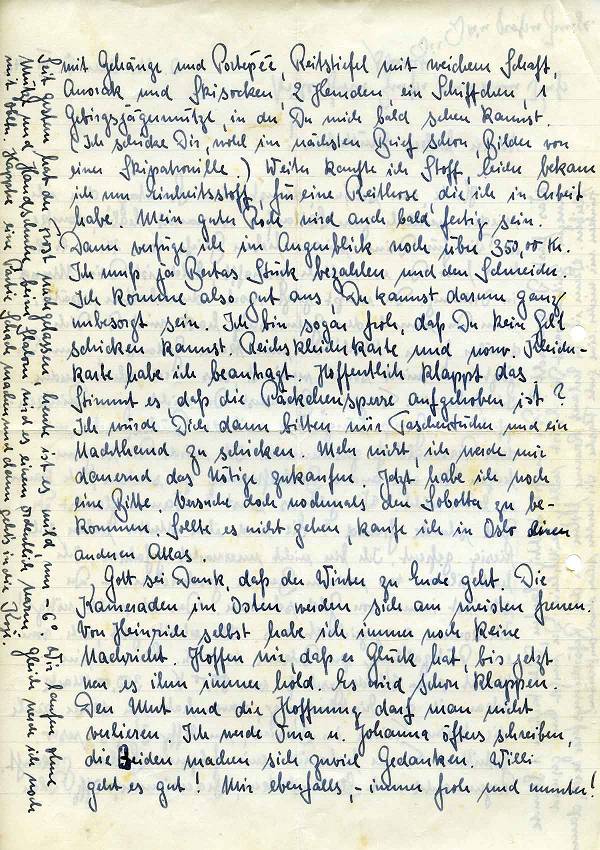 mit Gehänge und Portepée, Reitstiefel mit weichem Schaft,
Anorak und Skisocken, 2 Hemden ein Schiffchen, 1
Gebirgsjägermütze, in der Du mich bald sehen kannst.
(Ich schicke Dir, wohl im nächsten Brief schon, Bilder von
einer Skipatrouille.) Weiter kaufte ich Stoff, leider bekam
ich nur Einheitsstoff, für eine Reithose, die ich in Arbeit
habe. Mein guter Rock wird auch bald fertig sein.
Dann verfüge ich im Augenblick noch über 350,00 Kr.
Ich muß ja Bertas Stück bezahlen und den Schneider.
Ich komme also gut aus, Du kannst darum ganz
unbesorgt sein. Ich bin sogar froh, daß Du kein Geld
schicken kannst. Reichskleiderkarte und norw. Kleider-
karte habe ich beantragt. Hoffentlich klappt das.
Stimmt es, daß die Päckchensperre aufgehoben ist?
Ich würde Dich dann bitten mir Taschentücher und ein
Nachthemd zu schicken. Mehr nicht, ich werde mir
dauernd das Nötige zukaufen. Jetzt habe ich noch
eine Bitte. Versuche doch nochmals den Sobotta zu be-
kommen. Sollte es nicht gehen, kaufe ich in Oslo einen
anderen Atlas.
Gott sei Dank, daß der Winter zu Ende geht. Die
Kameraden im Osten werden sich am meisten freuen.
Von Heinrich selbst habe ich immer noch keine
Nachricht. Hoffen wir, daß er Glück hat, bis jetzt
war es ihm immer hold. Es wird schon klappen.
Den Mut und die Hoffnung darf man nicht
verlieren. Ich werde Oma u. Johanna öfters schreiben,
die Beiden machen sich zuviel Gedanken. Willi
geht es gut! Mir ebenfalls, – immer froh und munter!
Seit gestern hat der Frost nachgelassen, heute ist es mild, nur -6°. Wir laufen ohne
Mütze und Handschuhe, beim Slalom wird es einem ordentlich warm. Gleich werde ich noch
mit Partie Schach machen und dann geht's in die Koje.